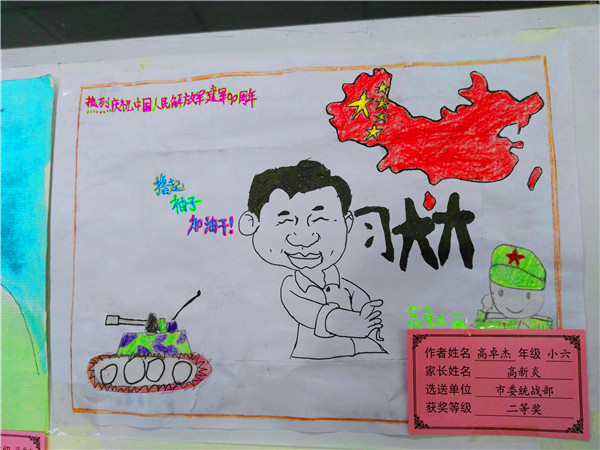 热烈庆祝中国人民解放军建军90周年
撸起
袖子
加油干!
习大大
作者姓名 高卓杰 年级 小六
家长姓名 高新炎
选送单位 市委统战部
获奖等级 二等奖